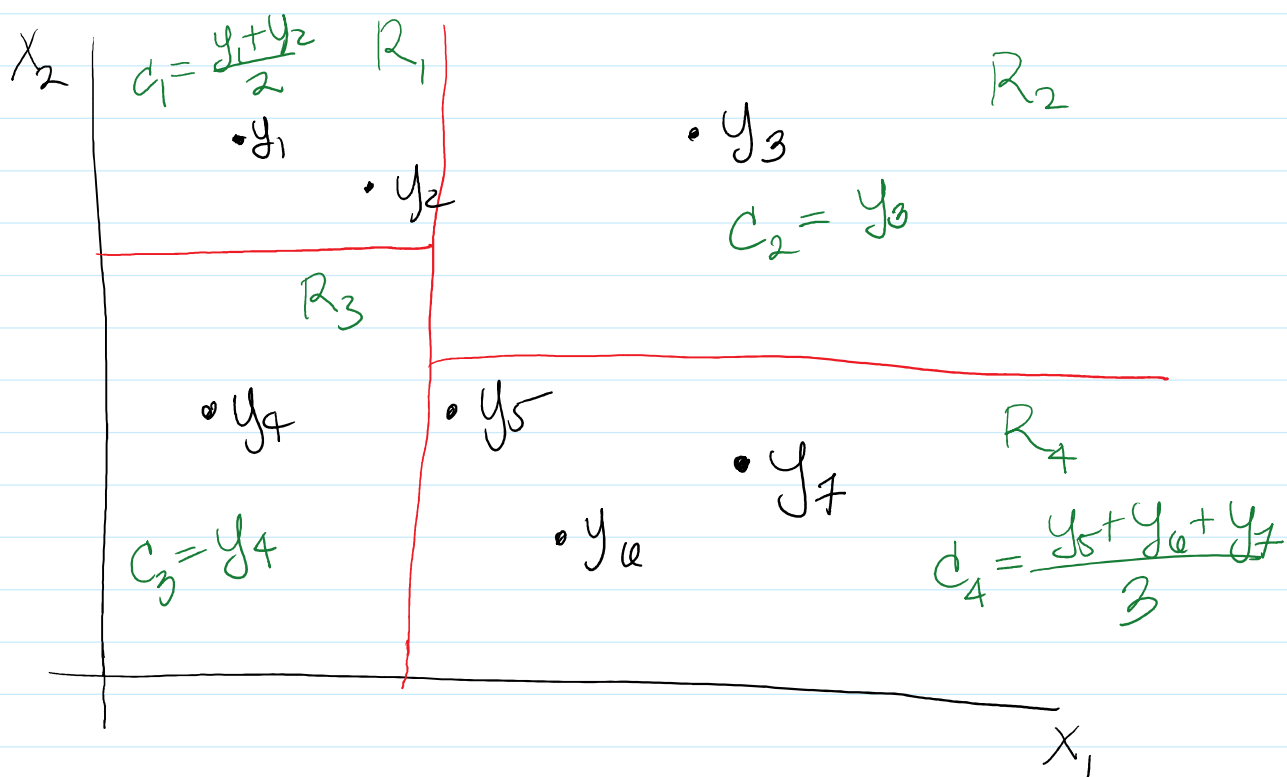 X₂
c₁ = (y₁+y₂)/2
R₁
R₂
y₁
y₂
y₃
c₂ = y₃
R₃
y₄
y₅
R₄
y₇
y₆
c₃ = y₄
c₄ = (y₅+y₆+y₇)/3
X₁